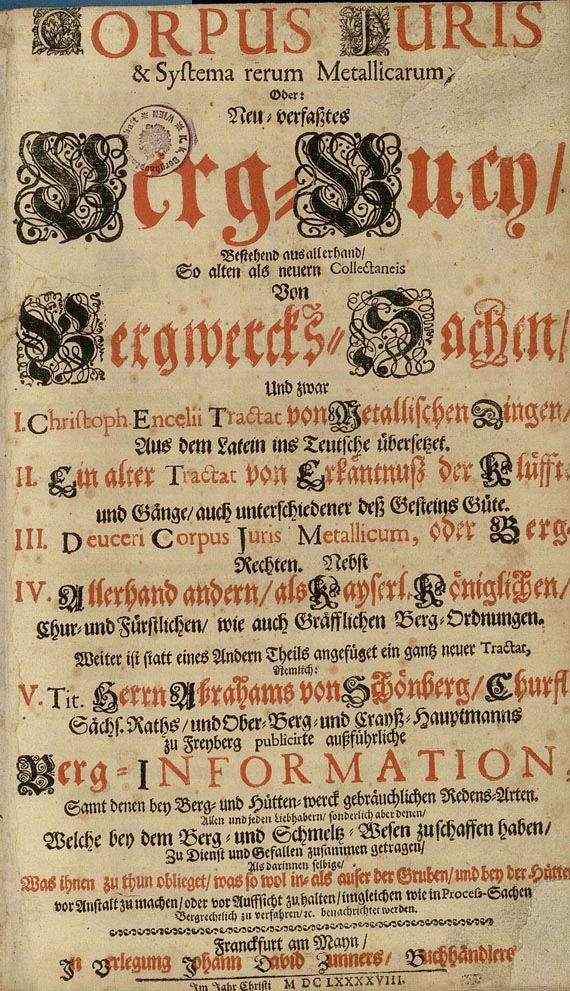 CORPUS JURIS
& Systema rerum Metallicarum,
Oder:
Neu-verfaßtes
Berg-Buch/
Bestehend aus allerhand/
So alten als neuern Collectaneis
Von
Bergwercks-Sachen/
Und zwar
I. Christoph Encelii Tractat von Metallischen Dingen/
Aus dem Latein ins Teutsche übersetzet.
II. Ein alter Tractat von Erkäntnuß der Klüfft
und Gänge/ auch unterschiedener deß Gesteins Güte.
III. Deuceri Corpus Juris Metallicum, oder Berg-
Rechten. Nebst
IV. Allerhand andern/ als Kayserl. Königlichen/
Chur- und Fürstlichen/ wie auch Gräfflichen Berg-Ordnungen.
Weiter ist statt eines Andern Theils angefüget ein gantz neuer Tractat,
Nemlich:
V. Tit. Herrn Abrahams von Schönberg/ Churfl.
Sächs. Raths/ und Ober-Berg- und Crayß-Hauptmanns
zu Freyberg publicirte außführliche
Berg-INFORMATION,
Samt denen bey Berg- und Hütten-werck gebräuchlichen Redens-Arten.
Allen und jeden Liebhabern/ sonderlich aber denen/
Welche bey dem Berg- und Schmeltz-Wesen zu schaffen haben/
Zu Dienst und Gefallen zusammen getragen/
Als darinnen selbige/
Was ihnen zu thun oblieget/ was so wol in- als ausser der Gruben/ und bey der Hütten
vor Anstalt zu machen/ oder vor Auffsicht zu halten/ imgleichen wie in Process-Sachen
Bergrechtlich zu verfahren/ &c. benachrichtet werden.
Franckfurt am Mayn/
In Verlegung Johann David Zunners/ Buchhändlers
Im Jahr Christi M DC LXXXXVIII.